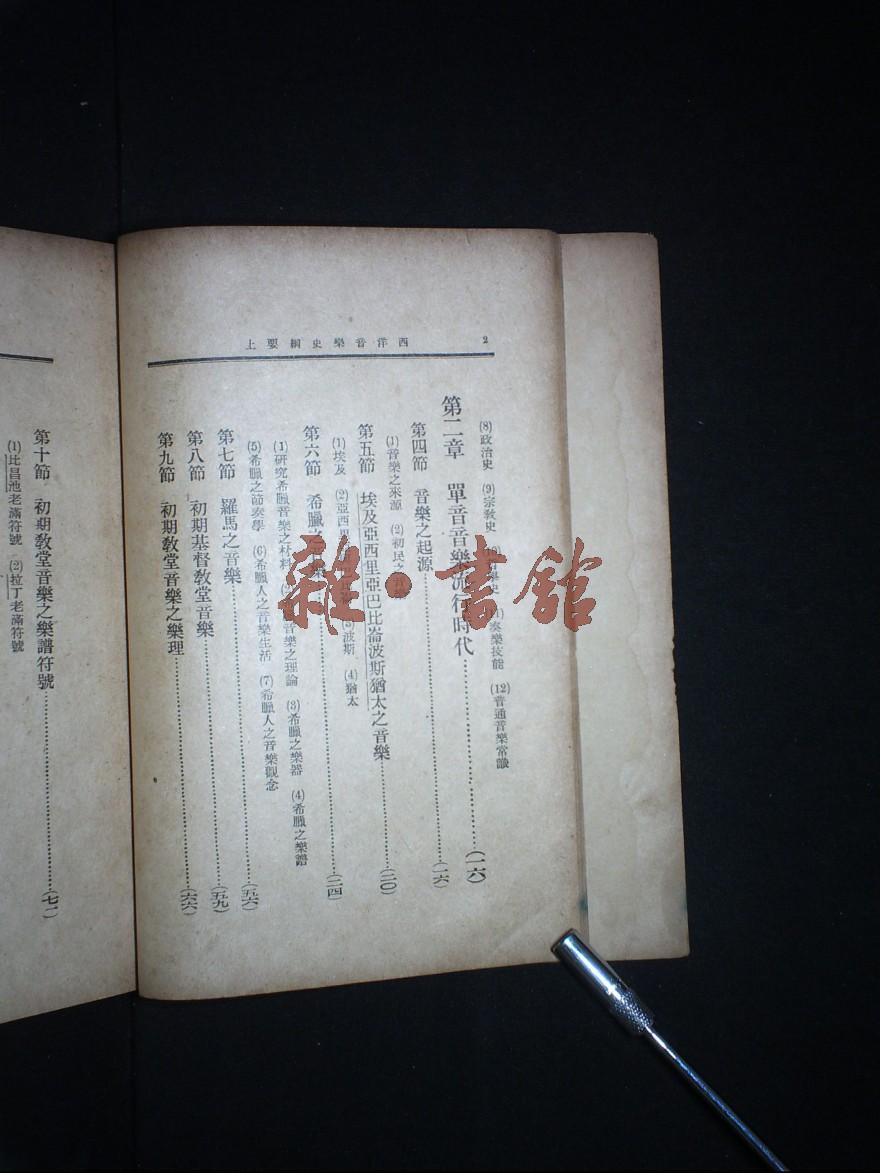 2
西洋音樂史綱要上
(8)政治史 (9)宗教史 史 奏樂技能 (12)普通音樂常識
第二章 單音音樂流行時代(一六)
第四節 音樂之起源(一六)
(1)音樂之來源 (2)初民之
第五節 埃及亞西里亞巴比崙波斯猶太之音樂(二〇)
(1)埃及 (2)亞西 (3)波斯 (4)猶太
第六節 希臘之(二四)
(1)研究希臘音樂之材料 音樂之理論 (3)希臘之樂器 (4)希臘之樂譜
(5)希臘之節奏學 (6)希臘人之音樂生活 (7)希臘人之音樂觀念
第七節 羅馬之音樂(五六)
第八節 初期基督教堂音樂(五九)
第九節 初期教堂音樂之樂理(六六)
第十節 初期教堂音樂之樂譜符號(七一)
(1)比昌池老滿符號 (2)拉丁老滿符號
雜·書館